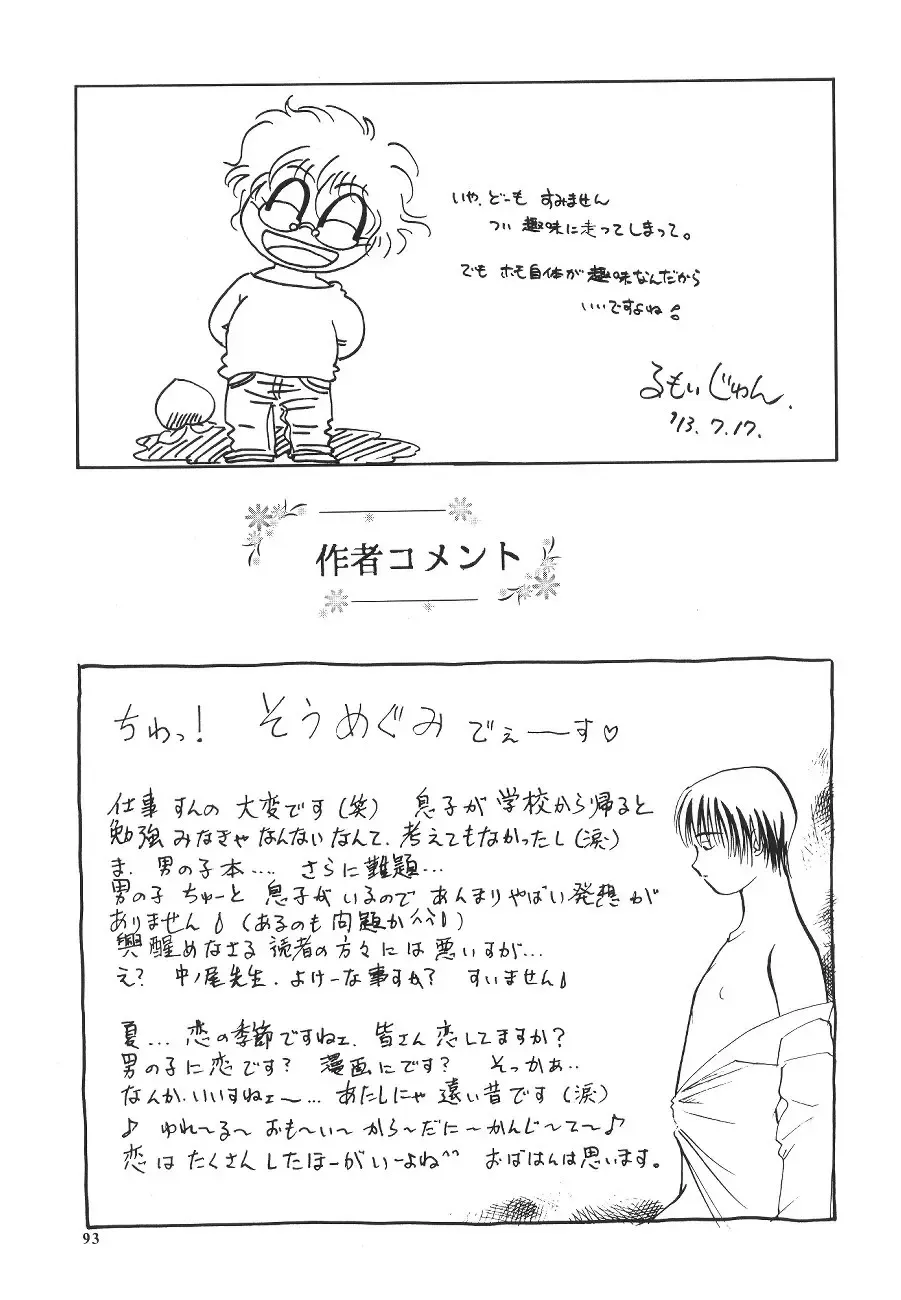 いや、どーも すみません
つい 趣味に走ってしまって。
でも ホモ自体が趣味なんだから
いいですよね!
るもいじゅん.
'13.7.17.
作者コメント
ちわっ! そうめぐみ でぇーーす♡
仕事 すんの 大変です(笑) 息子が学校から帰ると
勉強みなきゃなんないなんて、考えてもなかったし(涙)
ま、男の子本.... さらに難題...
男の子 ちゅーと 息子がいるので あんまりやばい発想が
ありません!(あるのも問題か^^!)
興醒めなさる読者の方々には悪いすが...
え? 中ノ尾先生、よけーな事すか? すいません!
夏... 恋の季節ですねェ、皆さん恋してますか?
男の子に恋です? 漫画にです? そっかぁ..
なんか、いいすねェ〜... あたしにゃ 遠い昔です(涙)
♪ ゆれ〜る〜 おも〜い〜 から〜だに〜かんじ〜て〜♪
恋は たくさん したほーがいーよね^^ おばはんは思います。
93